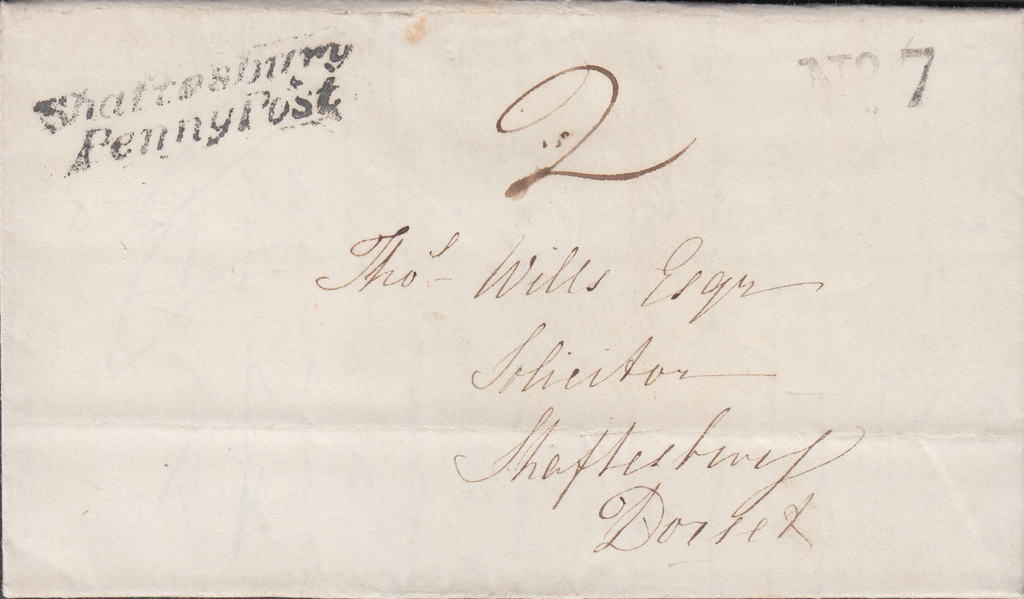 Shaftesbury
Penny Post
No 7
2
Thos Wills Esqr
Solicitor
Shaftesbury
Dorset